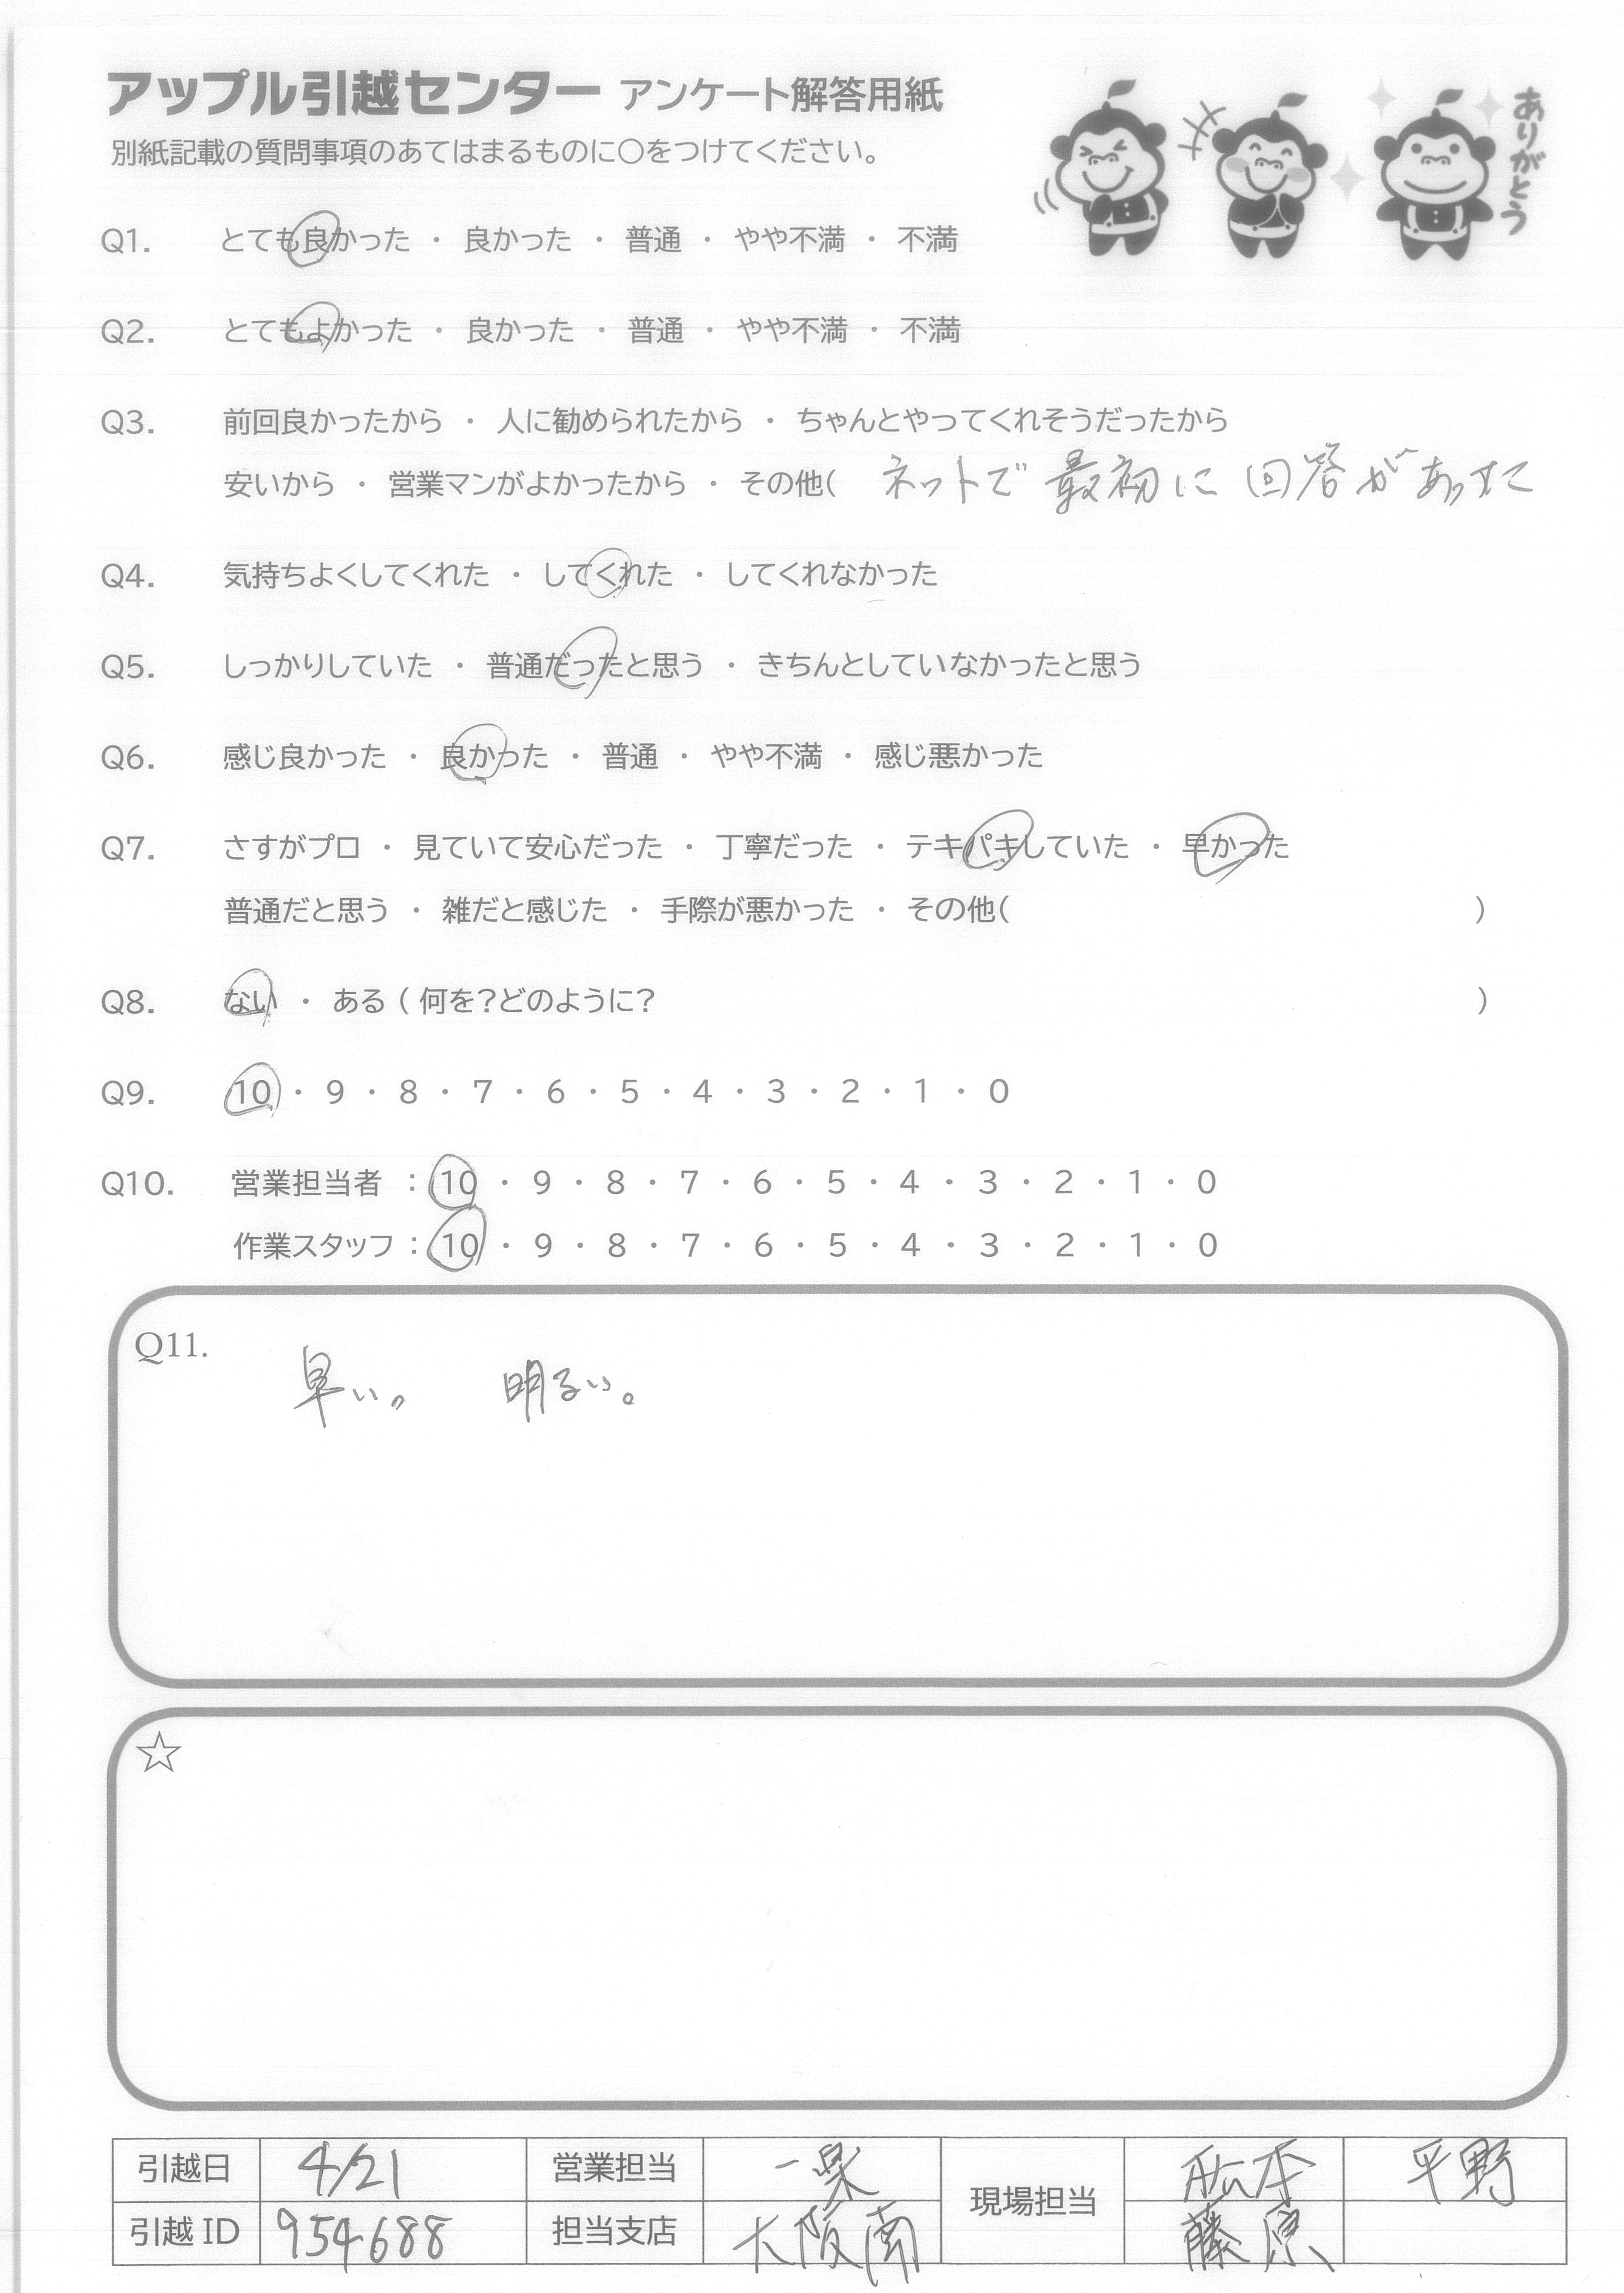 アップル引越センター アンケート解答用紙
ありがとう
別紙記載の質問事項のあてはまるものに○をつけてください。
Q1. とても良かった ・ 良かった ・ 普通 ・ やや不満 ・ 不満
Q2. とてもよかった ・ 良かった ・ 普通 ・ やや不満 ・ 不満
Q3. 前回良かったから ・ 人に勧められたから ・ ちゃんとやってくれそうだったから
安いから ・ 営業マンがよかったから ・ その他( ネットで最初に回答があった
Q4. 気持ちよくしてくれた ・ してくれた ・ してくれなかった
Q5. しっかりしていた ・ 普通だったと思う ・ きちんとしていなかったと思う
Q6. 感じ良かった ・ 良かった ・ 普通 ・ やや不満 ・ 感じ悪かった
Q7. さすがプロ ・ 見ていて安心だった ・ 丁寧だった ・ テキパキしていた ・ 早かった
普通だと思う ・ 雑だと感じた ・ 手際が悪かった ・ その他( )
Q8. ない ・ ある ( 何を?どのように? )
Q9. 10 ・ 9 ・ 8 ・ 7 ・ 6 ・ 5 ・ 4 ・ 3 ・ 2 ・ 1 ・ 0
Q10. 営業担当者 : 10 ・ 9 ・ 8 ・ 7 ・ 6 ・ 5 ・ 4 ・ 3 ・ 2 ・ 1 ・ 0
作業スタッフ : 10 ・ 9 ・ 8 ・ 7 ・ 6 ・ 5 ・ 4 ・ 3 ・ 2 ・ 1 ・ 0
Q11.
早い。 明るい。
☆
引越日 4/21 営業担当 現場担当 松本 平野
引越ID 954688 担当支店 大阪南 藤原